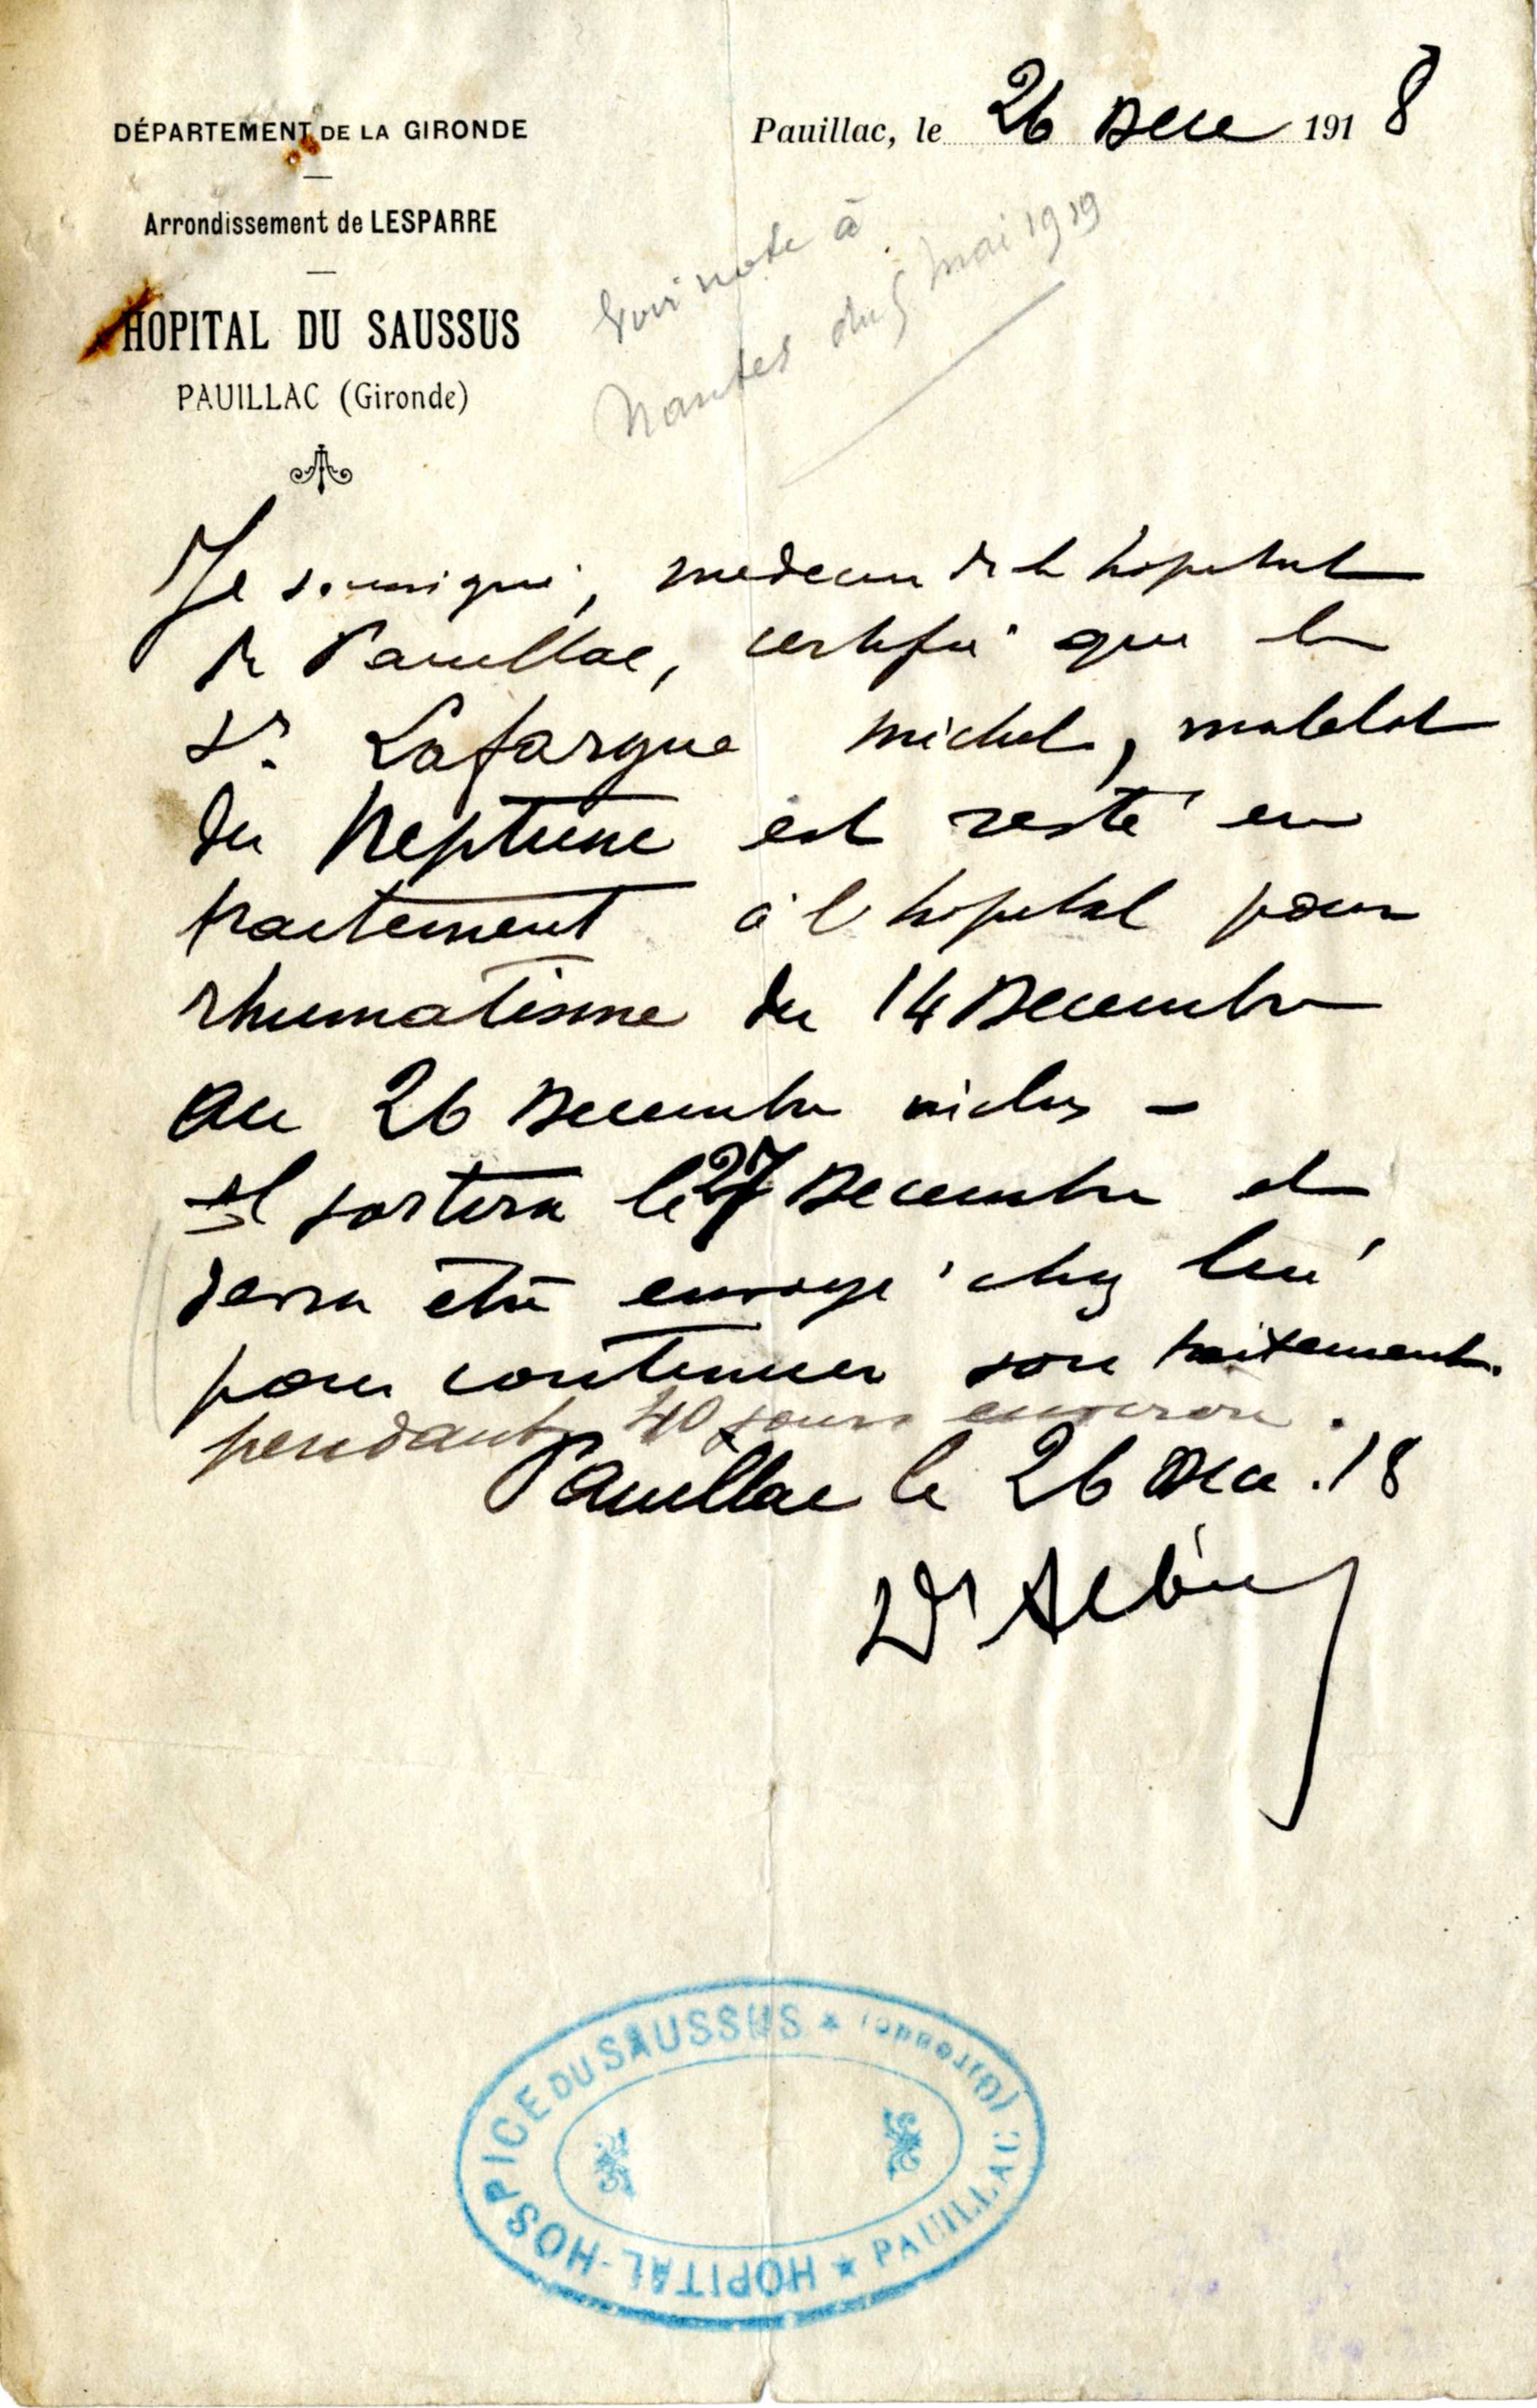 DÉPARTEMENT DE LA GIRONDE
Arrondissement de LESPARRE
HOPITAL DU SAUSSUS
PAUILLAC (Gironde)
Pauillac, le 26 Dece 1918
Voir note à
Nantes du 5 mai 1919
Je soussigné, medecin de l hopital
de Pauillac, certifie que le
Sr. Lafargue Michel, matelot
du Neptune est resté en
traitement à l'hopital pour
rhumatisme du 14 Decembre
au 26 Decembre inclus -
Il sortira le 27 Decembre et
devra être envoyé chez lui
pour continuer son traitement.
pendant 40 jours environ.
Pauillac le 26 Dec. 18
Dr
HOPITAL-HOSPICE DU SAUSSUS ★ PAUILLAC (Gironde) ★